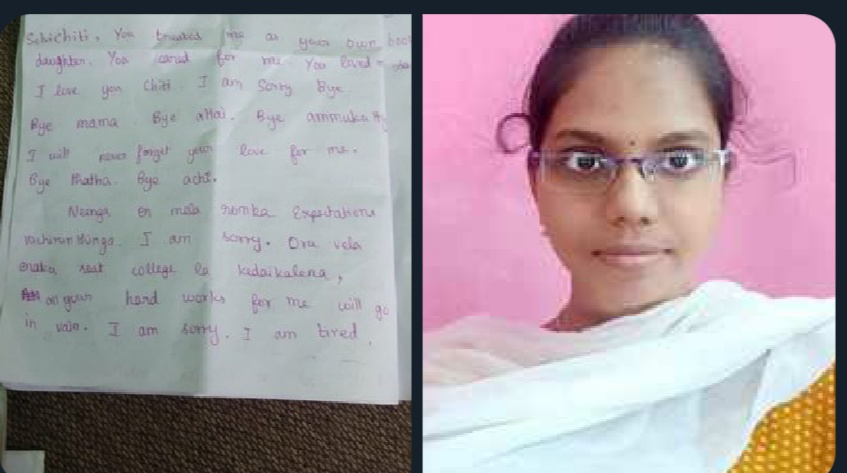 Sekichiti, You treated me as your own
daughter. You cared for me You loved
I love you Chiti. I am Sorry Bye.
Bye mama. Bye attai. Bye ammuka
I will never forget your love for me.
Bye thatha. Bye achi.
Neenga en mela romba Expectations
I am sorry. Oru vela
enaku seat college la kedaikalena,
all your hard works for me will go
in vain. I am sorry. I am tired.